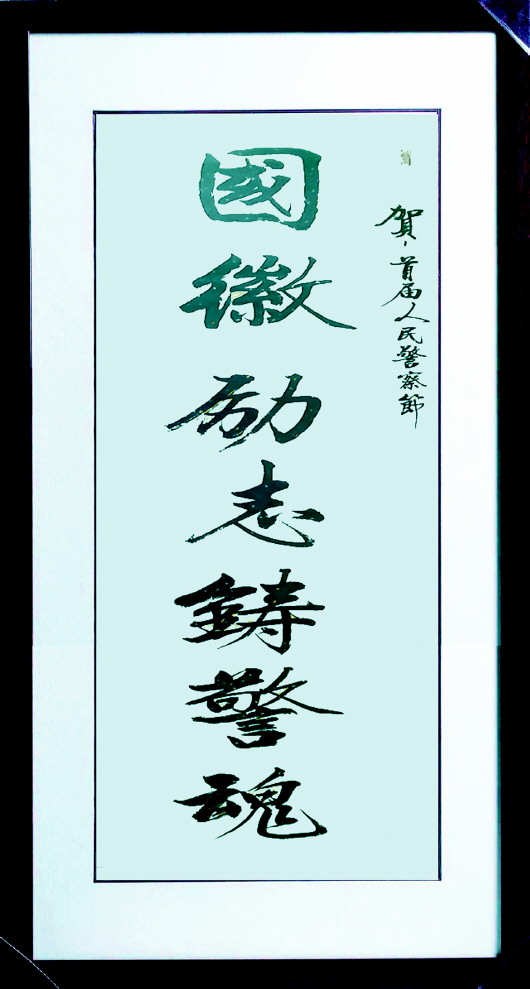 賀首届人民警察節
國徽励志鋳警魂